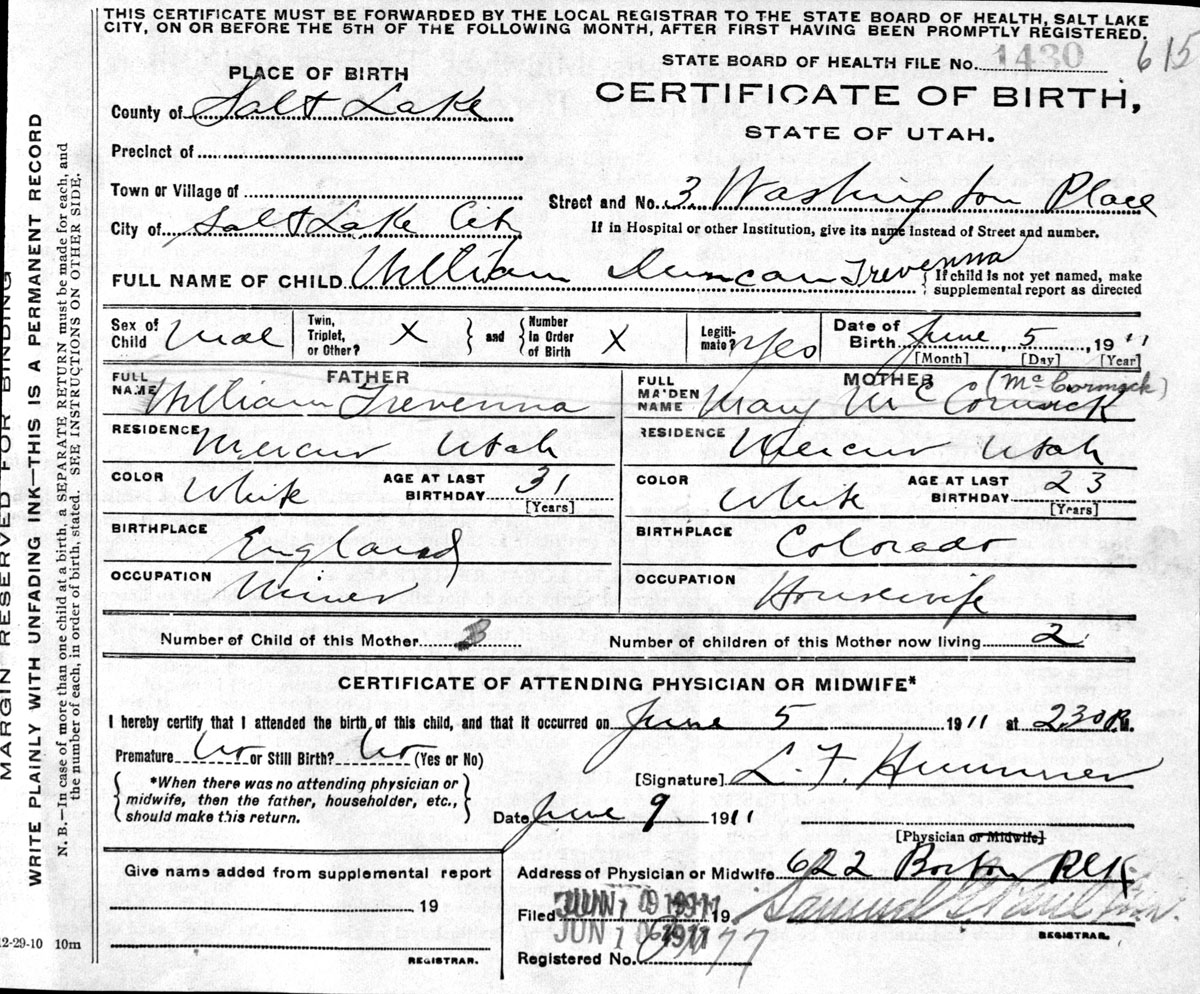 THIS CERTIFICATE MUST BE FORWARDED BY THE LOCAL REGISTRAR TO THE STATE BOARD OF HEALTH, SALT LAKE
CITY, ON OR BEFORE THE 5TH OF THE FOLLOWING MONTH, AFTER FIRST HAVING BEEN PROMPTLY REGISTERED.
STATE BOARD OF HEALTH FILE No. 1430 615
PLACE OF BIRTH
CERTIFICATE OF BIRTH,
STATE OF UTAH.
County of Salt Lake
Precinct of
Town or Village of
Street and No. 3 Washington Place
City of Salt Lake City
If in Hospital or other Institution, give its name instead of Street and number.
FULL NAME OF CHILD William Duncan Trevenna
{If child is not yet named, make
supplemental report as directed
Sex of Child Male
Twin, Triplet, or Other? X } and { Number in Order of Birth X
Legiti-mate? Yes
Date of Birth June, 5, 1911
[Month] [Day] [Year]
FATHER
FULL NAME William Trevenna
RESIDENCE Mercur Utah
COLOR White AGE AT LAST BIRTHDAY 31
[Years]
BIRTHPLACE England
OCCUPATION Miner
MOTHER
FULL MAIDEN NAME Mary McCormick (McCormack)
RESIDENCE Mercur Utah
COLOR White AGE AT LAST BIRTHDAY 23
[Years]
BIRTHPLACE Colorado
OCCUPATION Housewife
Number of Child of this Mother 3
Number of children of this Mother now living 2
CERTIFICATE OF ATTENDING PHYSICIAN OR MIDWIFE*
I hereby certify that I attended the birth of this child, and that it occurred on June 5 1911 at 2.30 P.M.
Premature No or Still Birth? No (Yes or No)
{ *When there was no attending physician or
midwife, then the father, householder, etc.,
should make this return. }
[Signature] L. F. Hummer
Date June 9 1911
[Physician or Midwife]
Give name added from supplemental report
19
REGISTRAR.
Address of Physician or Midwife 622 Boston Blk
Filed JUN 10 1911 19
JUN 10 1911
Samuel G. Paul
REGISTRAR.
Registered No. 677
12-29-10 10m
MARGIN RESERVED FOR BINDING
WRITE PLAINLY WITH UNFADING INK—THIS IS A PERMANENT RECORD
N. B.—In case of more than one child at a birth, a SEPARATE RETURN must be made for each, and
the number of each, in order of birth, stated. SEE INSTRUCTIONS ON OTHER SIDE.